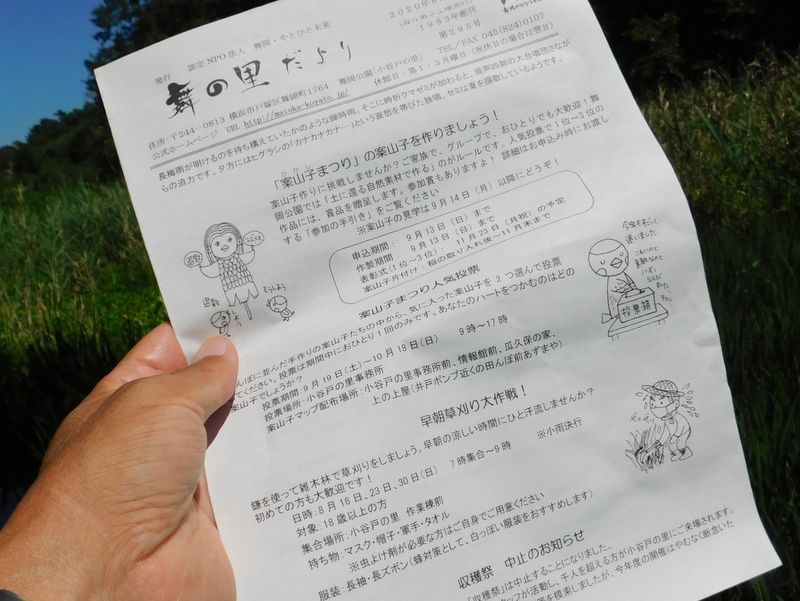 2020年8
(毎月第3土曜発行)
1993年創刊
第296号
発行
認定NPO法人 舞岡・やとひと未来
舞の里だより
住所:〒244-0813 横浜市戸塚区舞岡町1764 舞岡公園「小谷戸の里」 TEL/FAX 045(824)0107
公式ホームページ URL http://maioka-koyato.jp/ 休館日:第1・3月曜日(祝休日の場合は翌日)
長梅雨が明けるのを待ち構えていたかのような蝉時雨。そこに時折クマゼミが加わると、混声四部の大合唱団さなが
らの迫力です。夕方にはヒグラシの「カナカナカナ…」という哀愁を帯びた独唱。セミは夏を謳歌しているようです。
「案山子まつり」の案山子を作りましょう!
案山子作りに挑戦しませんか?ご家族で、グループで、おひとりでも大歓迎!舞
岡公園では「土に還る自然素材で作る」のがルールです。人気投票で1位~3位の
作品には、賞品を贈呈します。参加賞もありますよ! 詳細はお申込み時にお渡し
する「参加の手引き」をご覧ください
※案山子の見学は9月14日(月)以降にどうぞ!
申込期間: 9月13日(日)まで
作製期間: 9月13日(日)まで
表彰式(1位~3位): 11月23日(月祝)の予定
案山子片付け: 稲の取り入れ後~11月末まで
案山子まつり人気投票
んぼに並んだ手作りの案山子たちの中から、気に入った案山子を2つ選んで投票
てください。投票は期間中におひとり1回のみです。あなたのハートをつかむのはどの
案山子でしょうか?
投票期間:9月19日(土)~10月18日(日) 9時~17時
投票場所:小谷戸の里事務所
案山子マップ配布場所:小谷戸の里事務所前、情報館前、瓜久保の家、
上の上屋(井戸ポンプ近くの田んぼ前あずまや)
早朝草刈り大作戦!
鎌を使って雑木林で草刈りをしましょう。早朝の涼しい時間にひと汗流しませんか?
初めての方も大歓迎です!
日時:8月16、23、30日(日) 7時集合~9時 ※小雨決行
対象:18歳以上の方
集合場所:小谷戸の里 作業棟前
持ち物:マスク・帽子・軍手・タオル
※虫よけ剤が必要な方はご自身でご用意ください
服装:長袖・長ズボン(蜂対策として、白っぽい服装をおすすめします)
収穫祭 中止のお知らせ
「収穫祭」は中止することになりました。
タッフが活動し、千人を超える方が小谷戸の里にご来場されます。
等を模索しましたが、今年度の開催はやむなく断念いた
退散
投票箱